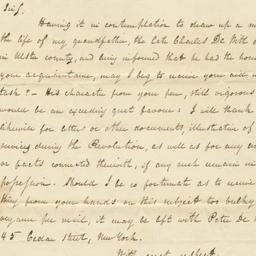 Sir,
Having it in contemplation to draw up a m
the life of my grandfather, the late Charles De Witt o
in Ulster county, and being informed that he had the hono
your acquaintance, may I beg to receive your aid in
task? – His character from your pen, still vigorous
would be an exceeding great favour: I will thank
likewise for letters or other documents, illustrative of
services during the Revolution, as well as for any
or facts connected therewith, if any such remain in
possession. Should I be so fortunate as to receive
thing from your hands on this subject too bulky
by mail, it may be left with Peter De W
45 Cedar Street, New York.
With great respect